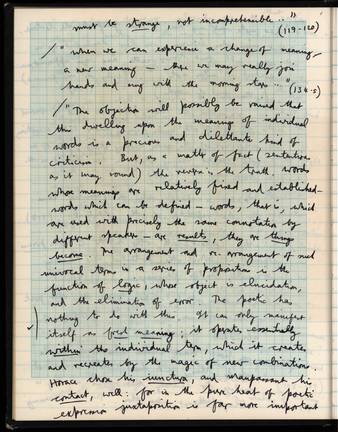 must be strange, not incomprehensible .."
(119-120)
/ " when we can experience a change of meaning –
a new meaning – there we may really join
hands and sing with the morning stars .." (134.5)
/ " The objection will possibly be raised that
this dwelling upon the meanings of individual
words is a precious and dilettante kind of
criticism. But, as a matter of fact (sententious
as it may sound) the reverse is the truth. Words
whose meanings are relatively fixed and established –
words which can be defined – words, that is, which
are used with precisely the same connotation by
different speakers – are results, they are things
become. The arrangement and re-arrangement of such
univocal terms in a series of propositions is the
function of logic, whose object is elucidation,
and the elimination of error. The poetic has
nothing to do with this. It can only manifest
itself as fresh meaning; it operates essentially
within the individual term, which it creates
and recreates by the magic of new combinations.
Horace chose his iunctura, and Maupassant his
contact, well: for in the pure heat of poetic
expression juxtaposition is far more important